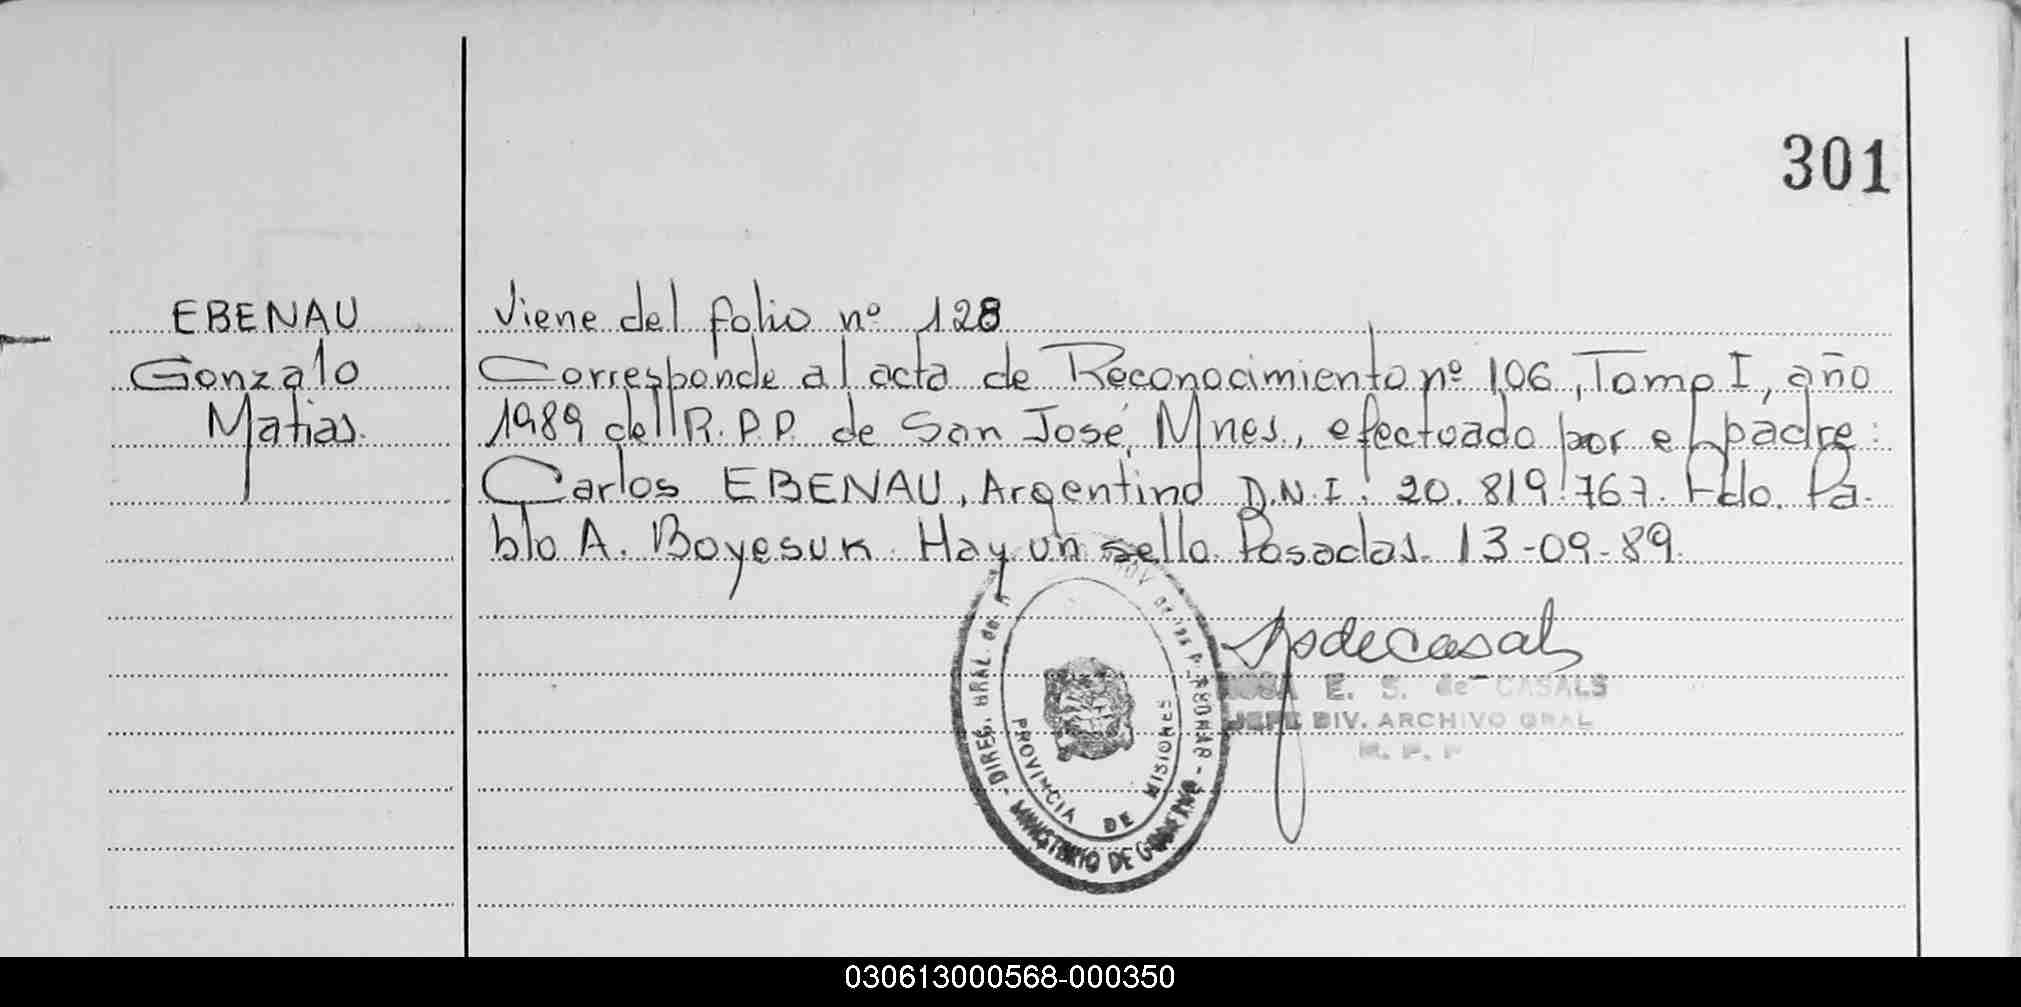 301
EBENAU
Gonzalo
Matias.
Viene del folio nº 128
Corresponde al acta de Reconocimiento nº 106, Tomo I, año
1989 del R.P.P. de San José, Mnes., efectuado por el padre:
Carlos EBENAU, Argentino D.N.I. 20.819.767. Fdo. Pa-
blo A. Boyesuk. Hay un sello. Posadas. 13-09-89.
DIREG. GRAL. de
PROV. de las PERSONAS
- MINISTERIO DE GOBIERNO -
PROVINCIA DE MISIONES
E. S. de CASALS
JEFE DIV. ARCHIVO GRAL
R. P. P
030613000568-000350